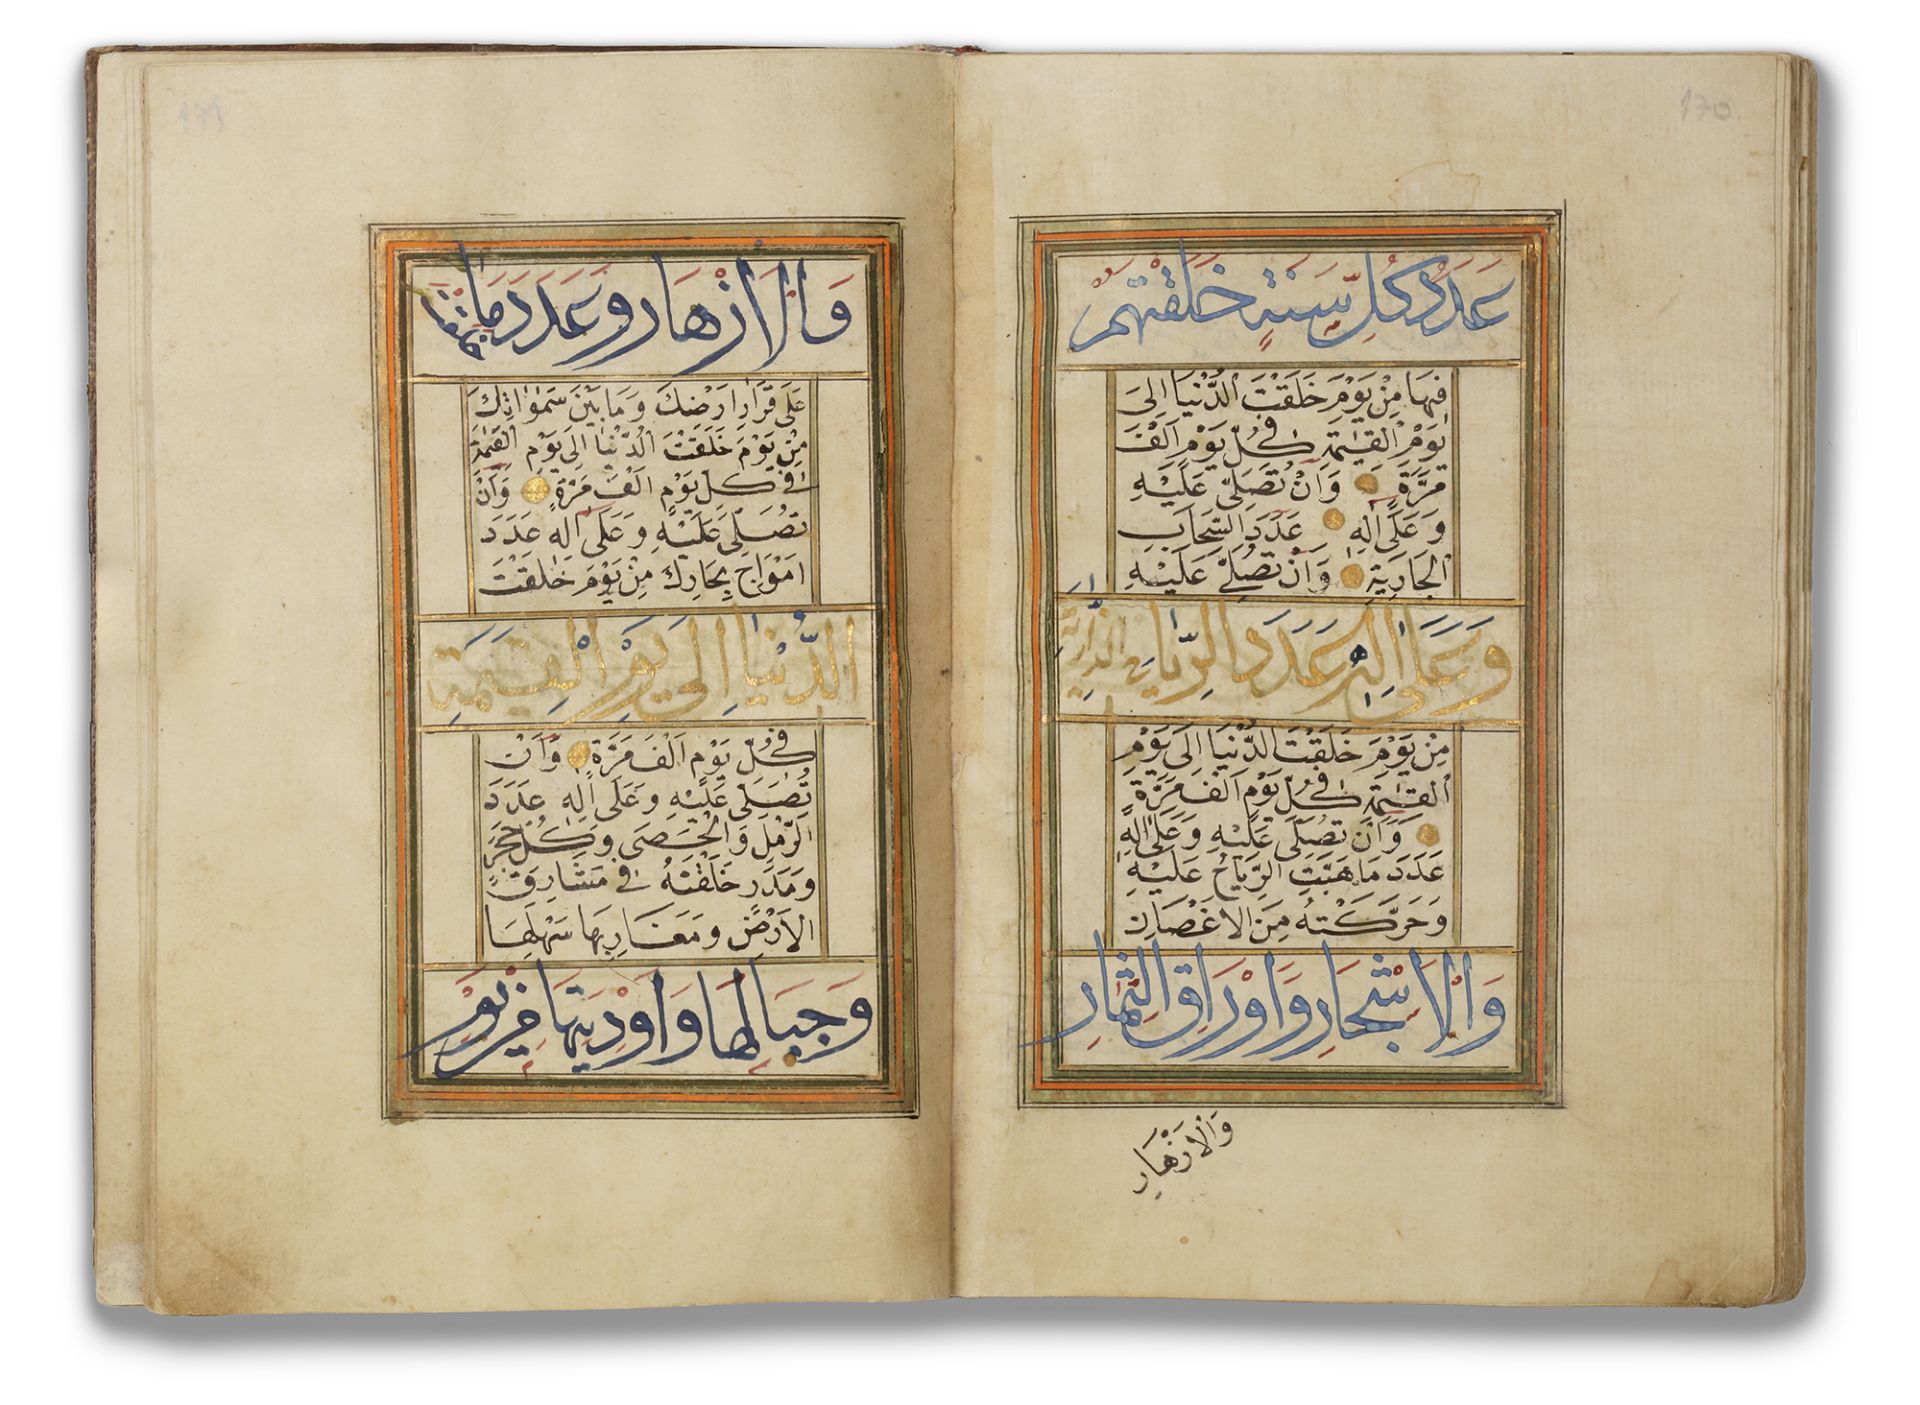 ١٧٥
عَدَدَ كُلِّ سَنَةٍ خَلَقْتَهُمْ
فِيهَا مِنْ يَوْمَ خَلَقْتَ الدُّنْيَا اِلَى
يَوْمِ الْقِيٰمَةِ فِى كُلِّ يَوْمٍ اَلْفَ
مَرَّةٍ وَاَنْ تُصَلِّىَ عَلَيْهِ
وَعَلَى اٰلِهٖ عَدَدَ السَّحَابِ
الْجَارِيَةِ وَاَنْ تُصَلِّىَ عَلَيْهِ
وَعَلَى اٰلِهِ عَدَدَ الرِّيَاحِ الذَّارِيَةِ
مِنْ يَوْمَ خَلَقْتَ الدُّنْيَا اِلَى يَوْمِ
الْقِيٰمَةِ فِى كُلِّ يَوْمٍ اَلْفَ مَرَّةٍ
وَاَنْ تُصَلِّىَ عَلَيْهِ وَعَلَى اٰلِهٖ
عَدَدَ مَا هَبَّتِ الرِّيَاحُ عَلَيْهِ
وَحَرَّكَتْهُ مِنَ الاَغْصَانِ
وَالْاَشْجَارِ وَاَوْرَاقِ الثِّمَارِ
وَالاَزْهَارِ
١٧٦
وَالْاَزْهَارِ وَعَدَدَ مَا خَلَقْتَ
عَلَى قَرَارِ اَرْضِكَ وَمَا بَيْنَ سَمٰوَاتِكَ
مِنْ يَوْمَ خَلَقْتَ الدُّنْيَا اِلَى يَوْمِ الْقِيٰمَةِ
فِى كُلِّ يَوْمٍ اَلْفَ مَرَّةٍ وَاَنْ
تُصَلِّىَ عَلَيْهِ وَعَلَى اٰلِهٖ عَدَدَ
اَمْوَاجِ بِحَارِكَ مِنْ يَوْمَ خَلَقْتَ
الدُّنْيَا اِلَى يَوْمِ الْقِيٰمَةِ
فِى كُلِّ يَوْمٍ اَلْفَ مَرَّةٍ وَاَنْ
تُصَلِّىَ عَلَيْهِ وَعَلَى اٰلِهٖ عَدَدَ
الرَّمْلِ وَالْحَصٰى وَكُلِّ حَجَرٍ
وَمَدَرٍ خَلَقْتَهُ فِى مَشَارِقِ
الاَرْضِ وَمَغَارِبِهَا سَهْلِهَا
وَجِبَالِهَا وَاَوْدِيَتِهَا مِنْ يَوْمَ